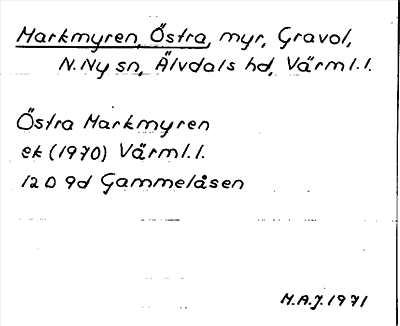 Markmyren, Östra, myr, Gravol,
N. Ny sn, Älvdals hd, Värml. l.
Östra Markmyren
ek (1970) Värml. l.
12 D 9d Gammelåsen
M.A.J. 1971